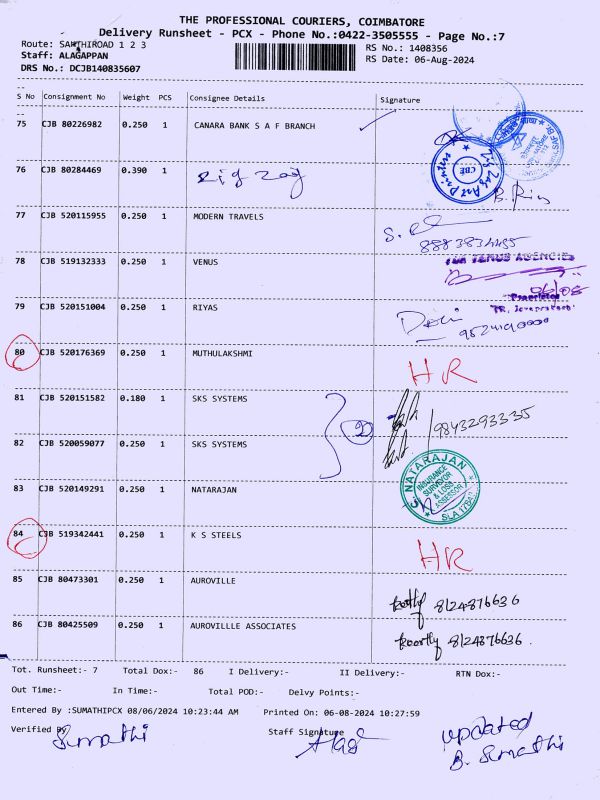 THE PROFESSIONAL COURIERS, COIMBATORE
Delivery Runsheet - PCX - Phone No.:0422-3505555 - Page No.:7
Route: SATHIROAD 1 2 3 RS No.: 1408356
Staff: ALAGAPPAN RS Date: 06-Aug-2024
DRS No.: DCJB140835607
S No Consignment No Weight PCS Consignee Details Signature
75 CJB 80226982 0.250 1 CANARA BANK S A F BRANCH
76 CJB 80284469 0.390 1 Zig Zag CBE
77 CJB 520115955 0.250 1 MODERN TRAVELS
78 CJB 519132333 0.250 1 VENUS VENUS AGENCIES
Proprietor
79 CJB 520151004 0.250 1 RIYAS
80 CJB 520176369 0.250 1 MUTHULAKSHMI HR
81 CJB 520151582 0.180 1 SKS SYSTEMS 2 9843293335
82 CJB 520059077 0.250 1 SKS SYSTEMS
83 CJB 520149291 0.250 1 NATARAJAN C. NATARAJAN INSURANCE SURVEYOR & LOSS ASSESSOR
84 CJB 519342441 0.250 1 K S STEELS HR
85 CJB 80473301 0.250 1 AUROVILLE 8124876636
86 CJB 80425509 0.250 1 AUROVILLLE ASSOCIATES 8124876636.
Tot. Runsheet:- 7 Total Dox:- 86 I Delivery:- II Delivery:- RTN Dox:-
Out Time:- In Time:- Total POD:- Delvy Points:-
Entered By :SUMATHIPCX 08/06/2024 10:23:44 AM Printed On: 06-08-2024 10:27:59
Verified By Sumathi Staff Signature Alag updated
B. Sumathi